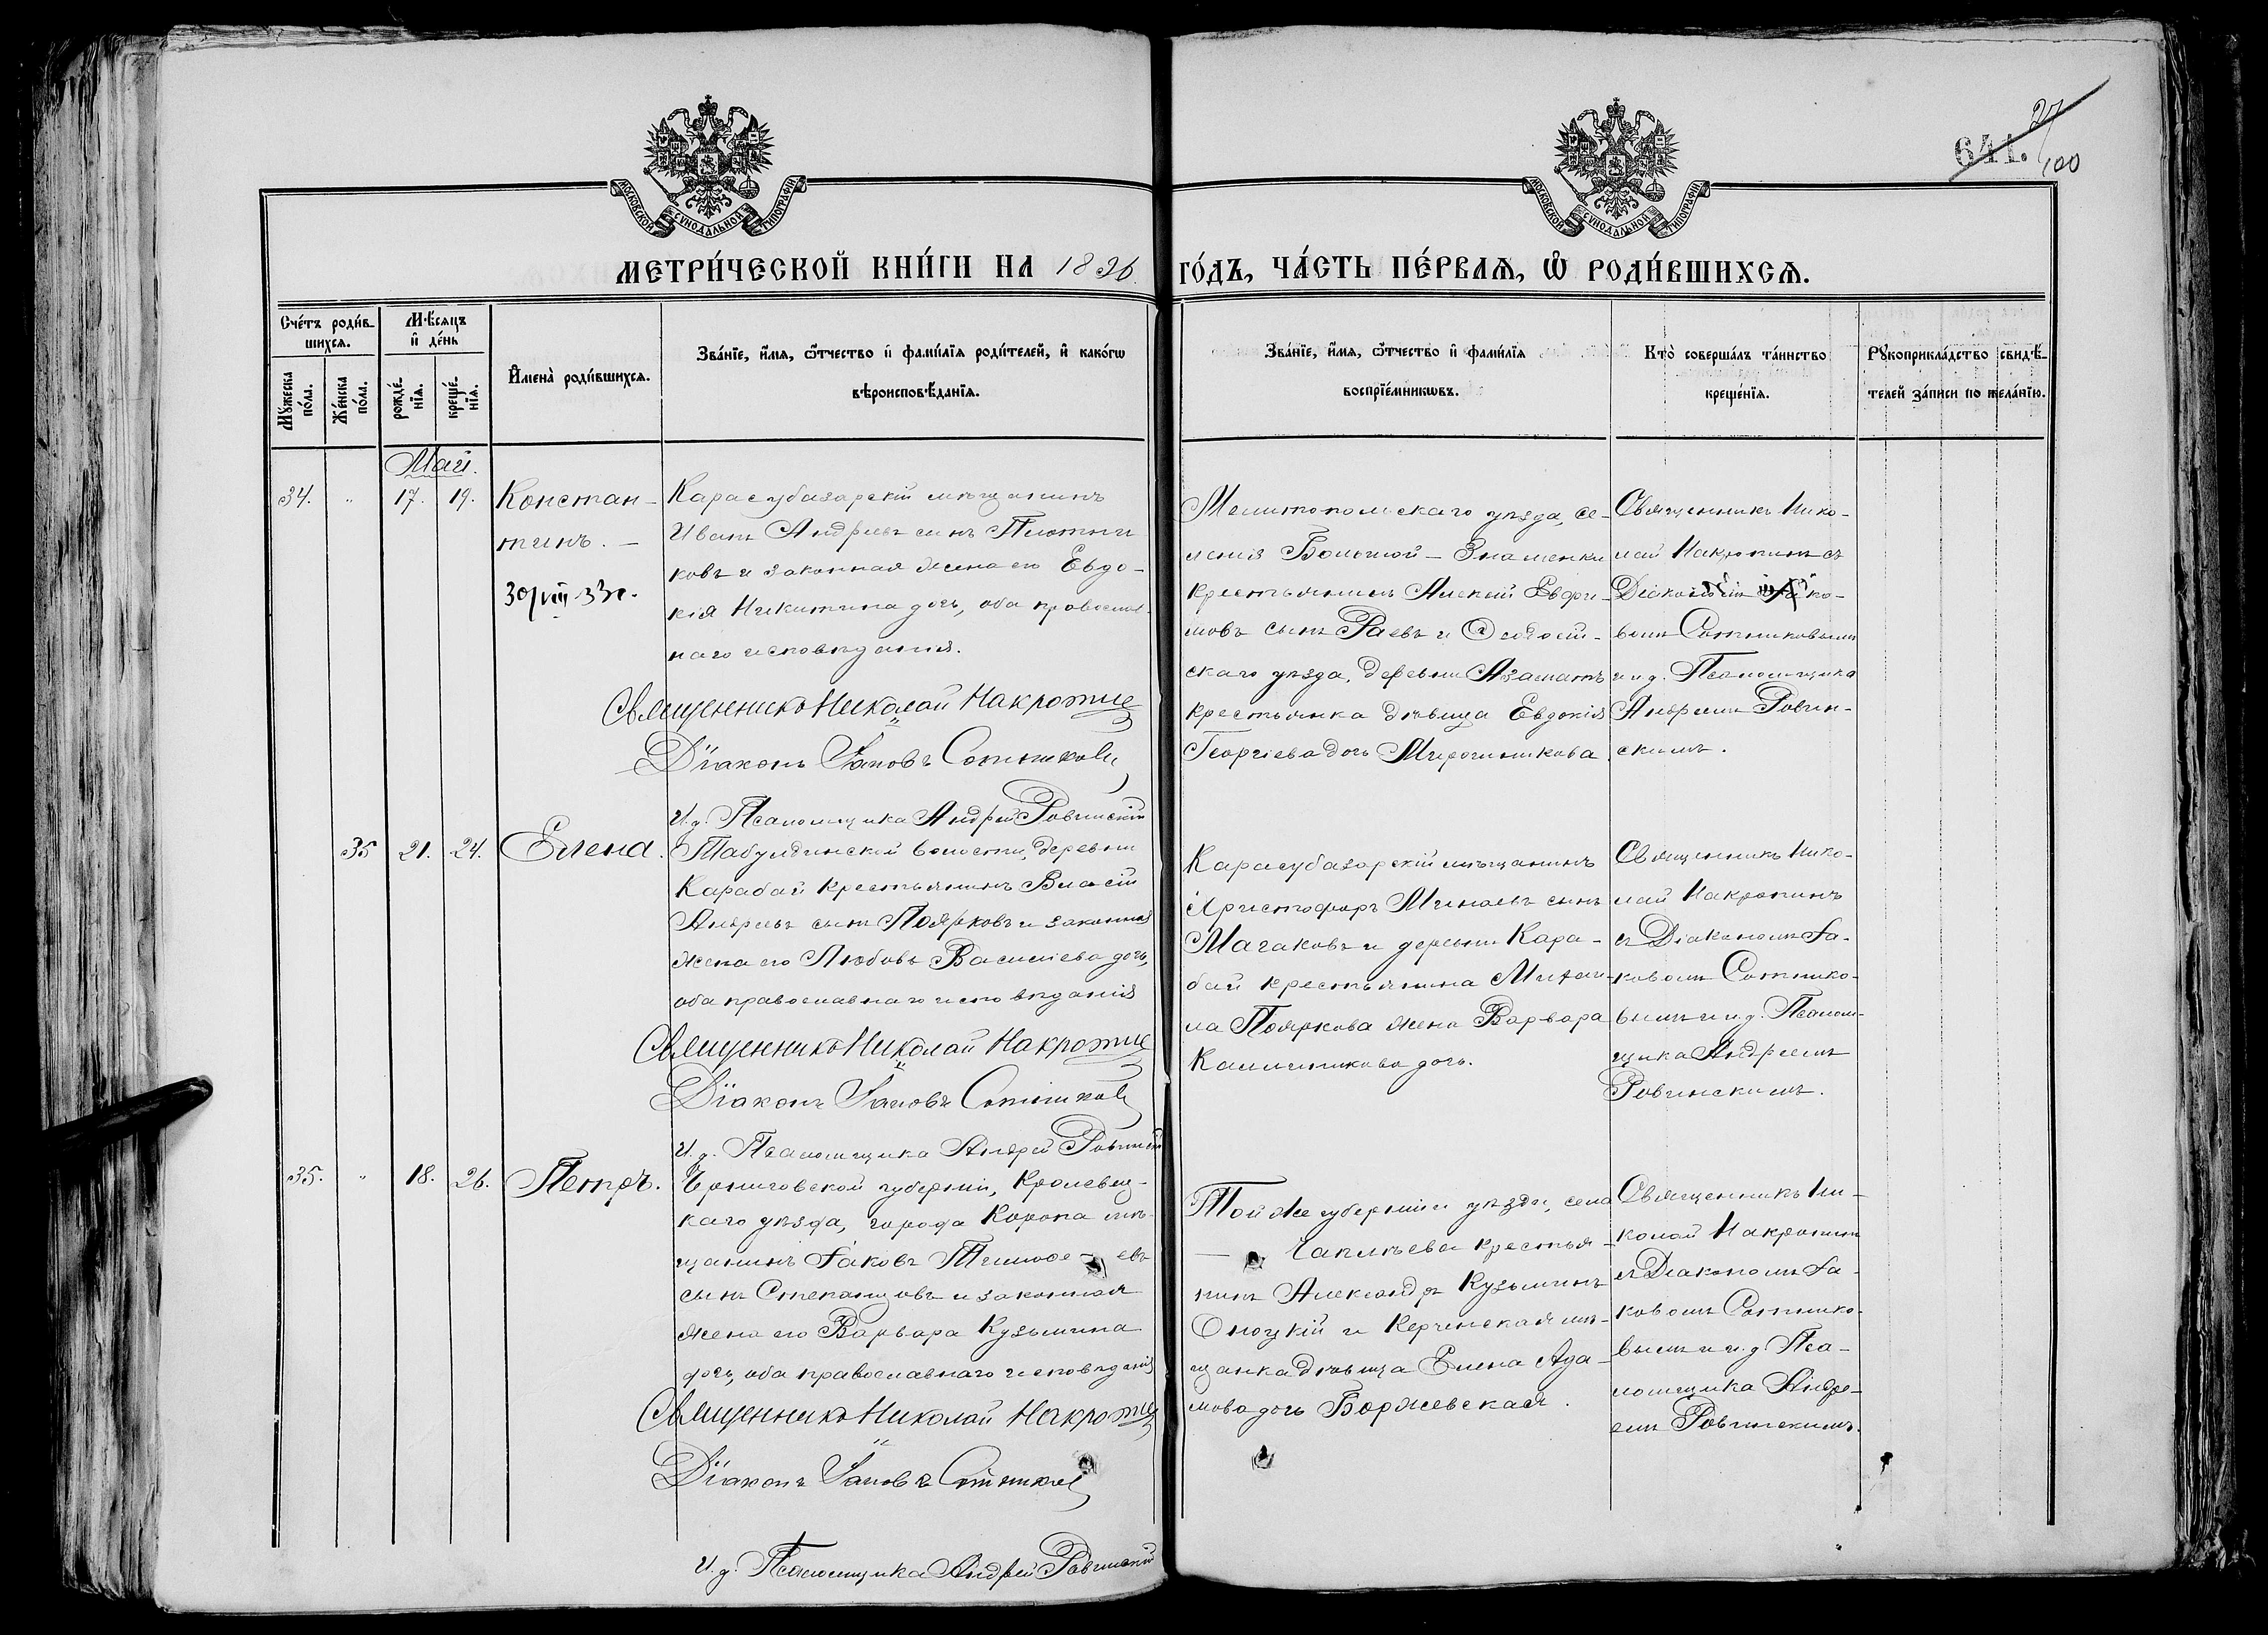 641.
100
МОСКОВСКОЙ СѴНОДАЛЬНОЙ ТИПОГРАФІИ
МОСКОВСКОЙ СѴНОДАЛЬНОЙ ТИПОГРАФІИ
МЕТРИ́ЧЕСКОЙ КНИ́ГИ НА 1896 ГО́ДЪ, ЧА́СТЬ ПЕ́РВАѦ, Ѿ РОДИ́ВШИХСѦ.
Сче́тъ роди́в-
шихсѧ.
Мꙋ́жеска
по́ла.
Же́нска
по́ла.
Мѣ́сѧцъ
и҆ де́нь
рожде́-
нїѧ.
креще́-
нїѧ.
И҆мена̀ роди́вшихсѧ.
Зва́нїе, и҆́мѧ, ѻ҆́тчество и҆ фами́лїѧ роди́телей, и҆ како́гѡ
вѣроисповѣ́данїѧ.
Зва́нїе, и҆́мѧ, ѻ҆́тчество и҆ фами́лїѧ
воспрїе́мникѡвъ.
Кто̀ соверша́лъ та́инство
креще́нїѧ.
Рꙋкоприкла́дство свидѣ́-
телей за́писи по жела́нїю.
Май.
34. " 17. 19. Констан-
тинъ. —
30/VIII 33 г.
Карасубазарскій мѣщанинъ
Иванъ Андреевъ сынъ Плотни
ковъ и законная жена его Евдо-
кія Никитина дочь, оба православ-
наго исповѣданія.
Священникъ Николай Накропин
Діаконъ Іаковъ Сотников
И. д. Псаломщика Андрей Ровинскій
Мелитопольскаго уѣзда, се-
ленія Большой-Знаменки
крестьянинъ Алексій Евфи-
мовъ сынъ Раевъ и Ѳеодосій-
скаго уѣзда, деревни Азаматъ
крестьянка дѣвица Евдокія
Георгіева дочь Мирошникова.
Священникъ Нико-
лай Накропинъ съ
Діакономъ Іако-
вомъ Сотниковымъ
и и. д. Псаломщика
Андреемъ Ровин-
скимъ.
35 21. 24. Елена.
Табулдинской волости, деревни
Карабай крестьянинъ Власій
Андреевъ сынъ Поярковъ и законная
жена его Любовь Василіева дочь,
оба православнаго исповѣданія
Священникъ Николай Накропин
Діаконъ Іаковъ Сотников
И. д. Псаломщика Андрей Ровинскій
Карасубазарскій мѣщанинъ
Христофоръ Минаевъ сынъ
Магаковъ и деревни Кара-
бай крестьянина Михаи-
ла Пояркова жена Варвара
Калинникова дочь.
Священникъ Нико-
лай Накропинъ
съ Діакономъ Іа-
ковомъ Сотнико-
вымъ и и. д. Псалом-
щика Андреемъ
Ровинскимъ.
35. " 18. 26. Петръ.
Черниговской губерніи, Кролевец-
каго уѣзда, города Коропа мѣ-
щанинъ Іаковъ Тимоѳеевъ
сынъ Степанцовъ и законная
жена его Варвара Кузьмина
дочь, оба православнаго исповѣданія
Священникъ Николай Накропин
Діаконъ Іаковъ Сотников
И. д. Псаломщика Андрей Ровинскій
Той же губерніи и уѣзда, села
крестья-
нинъ Александръ Кузьминъ
и Керченская мѣ-
щанка дѣвица Елена Ада-
мова дочь Боржевская.
Священникъ Ни-
колай Накропинъ
съ Діакономъ Іа-
ковомъ Сотнико-
вымъ и и. д. Пса-
ломщика Андре-
емъ Ровинскимъ.